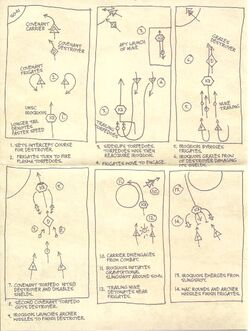 SOL
COVENANT
CARRIER
COVENANT
DESTROYER
COVENANT
FRIGATES
UNSC
IROQUOIS
LONGER TAIL
DENOTES
FASTER SPEED
1. SETS INTERCEPT COURSE
FOR DESTROYER.
2. FRIGATES TURN TO FIRE
PLASMA TORPEDOES.
AFT LAUNCH
OF NUKE
3. SIDESLIPS TORPEDOES.
TORPEDOES MISS THEN
REACQUIRE IROQUOIS.
4. FRIGATES MOVE TO ENGAGE.
GRAZES
DESTROYER
NUKE
TRAILING
5. IROQUOIS BYPASSES
FRIGATES.
6. IROQUOIS GRAZES PROW
OF DESTROYER DAMAGING
ITS SHIELDS.
7. COVENANT TORPEDO HITS
DESTROYER AND DISABLES
SHIELDS.
8. SECOND COVENANT TORPEDO
GUTS DESTROYER.
9. IROQUOIS LAUNCHES ARCHER
MISSILES TO FINISH DESTROYER.
10. CARRIER DISENGAGES
FROM COMBAT.
11. IROQUOIS INITIATES
GRAVITATIONAL
SLINGSHOT AROUND
12. TRAILING NUKE
DETONATES NEAR
FRIGATES.
13. IROQUOIS EMERGES FROM
SLINGSHOT.
14. MAC ROUNDS AND ARCHER
MISSILES FINISH FRIGATES.